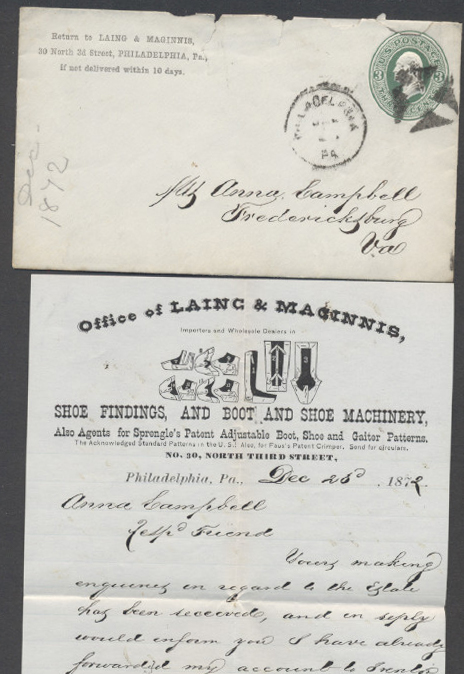 Return to LAING & MAGINNIS,
30 North 3d Street, PHILADELPHIA, Pa.,
if not delivered within 10 days.
U.S. POSTAGE
3 3
PHILADELPHIA
PA
Dec.
1872
Anna Campbell
Fredericksburg
Va
Office of LAING & MAGINNIS,
Importers and Wholesale Dealers in
SHOE FINDINGS, AND BOOT AND SHOE MACHINERY,
Also Agents for Sprengle's Patent Adjustable Boot, Shoe and Gaiter Patterns.
The Acknowledged Standard Patterns in the U. S. Also, for Faus's Patent Crimper. Send for circulars.
NO. 30, NORTH THIRD STREET,
Philadelphia, Pa., Dec 23d, 1872.
Anna Campbell
Resp'd Friend
Yours making
enquiries in regard to the Estate
has been received, and in reply
would inform you I have already
forwarded my account to